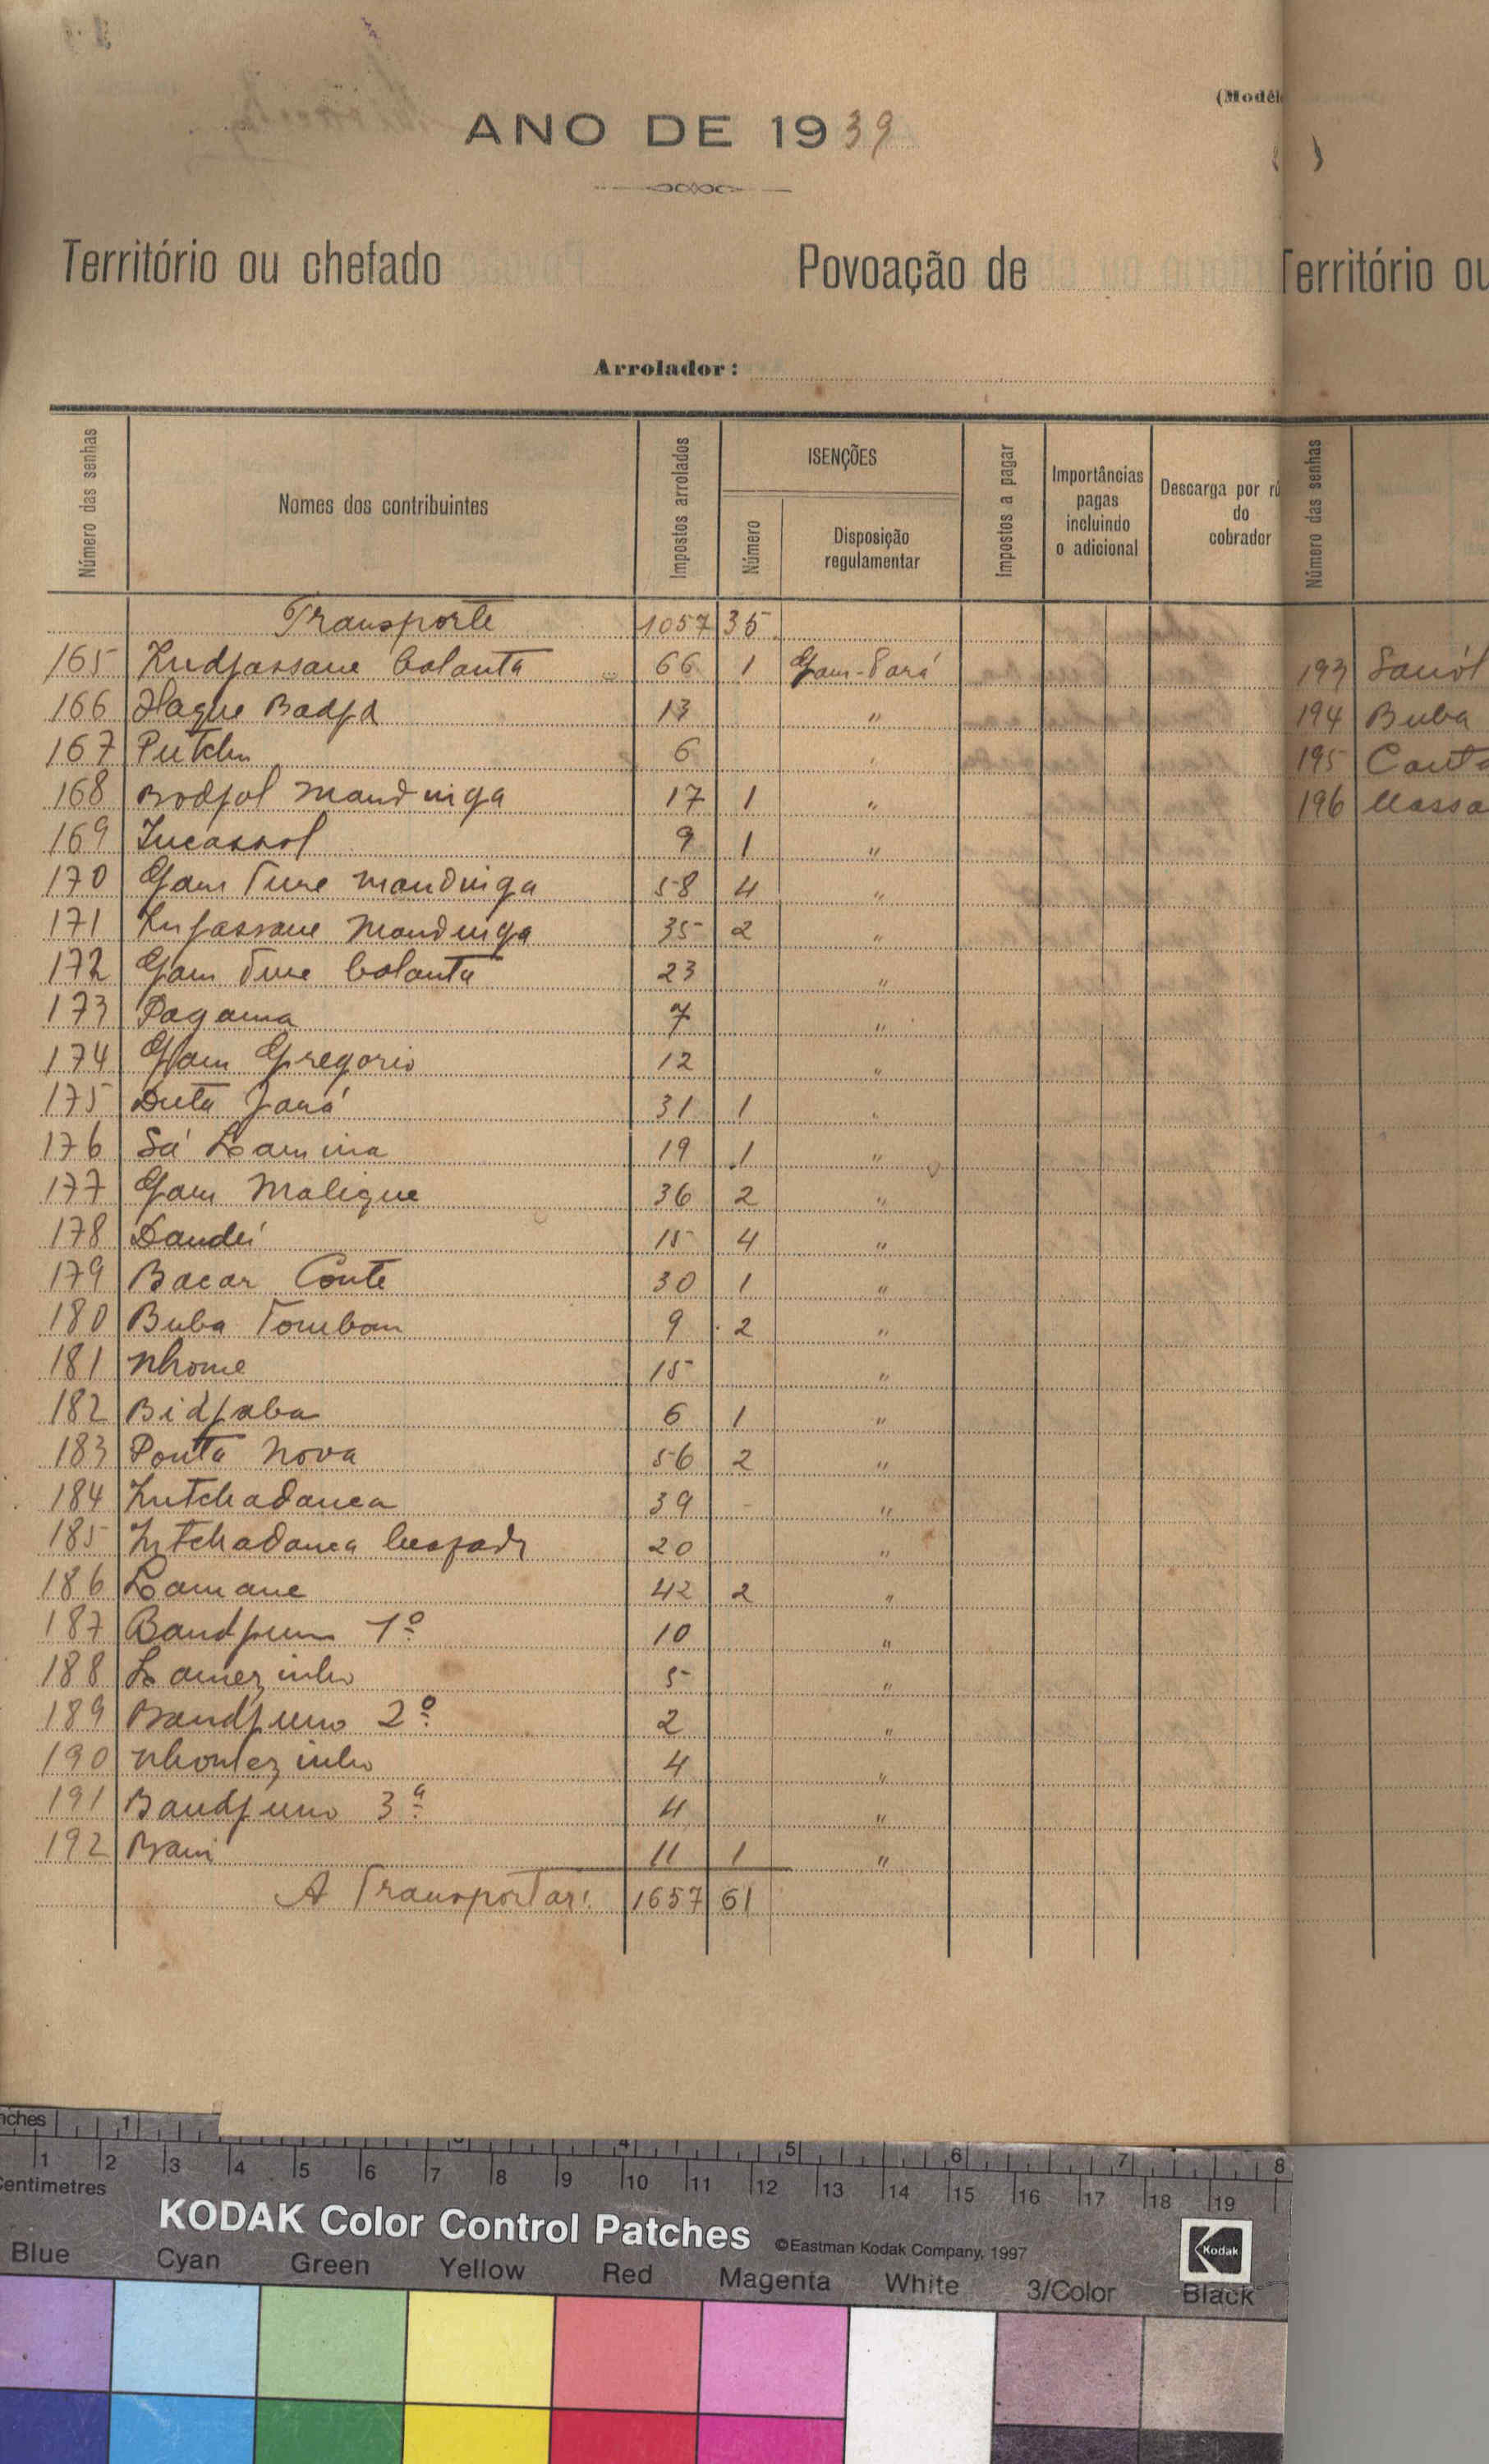 (Modêl
ANO DE 1939
Território ou chefado
Povoação de
Território ou
Arrolador:
Número das senhas
Nomes dos contribuintes
Impostos arrolados
ISENÇÕES
Número
Disposição regulamentar
Impostos a pagar
Importâncias pagas incluindo o adicional
Descarga por rú
do
cobrador
Número das senhas
Transporte 1057 35
165 balanta 66 1 Gam-Pará
166 Badja 13 "
167 6 "
168 Brodjol mandinga 17 1 "
169 9 1 "
170 Gam Ture mandinga 58 4 "
171 mandinga 35 2 "
172 Gam Ture balanta 23 "
173 Pagama 7 "
174 Gam Gregorio 12 "
175 31 1 "
176 Sá Lamina 19 1 "
177 Gam Malique 36 2 "
178 15 4 "
179 Bacar Conte 30 1 "
180 Buba Tombom 9 2 "
181 Nhome 15 "
182 Bidjaba 6 1 "
183 Ponta Nova 56 2 "
184 39 - "
185 20 "
186 Lamane 42 2 "
187 1º 10 "
188 Lamezinho 5 "
189 Bandjuno 2º 2 "
190 Nhomezinho 4 "
191 Bandjuno 3ª 4 "
192 11 1 "
A Transportar: 1657 61
193
194 Buba
195
196
nches 1 4 5 6 7 8
1 2 3 4 5 6 7 8 9 10 11 12 13 14 15 16 17 18 19
Centimetres
KODAK Color Control Patches
©Eastman Kodak Company, 1997
Kodak
Blue Cyan Green Yellow Red Magenta White 3/Color Black